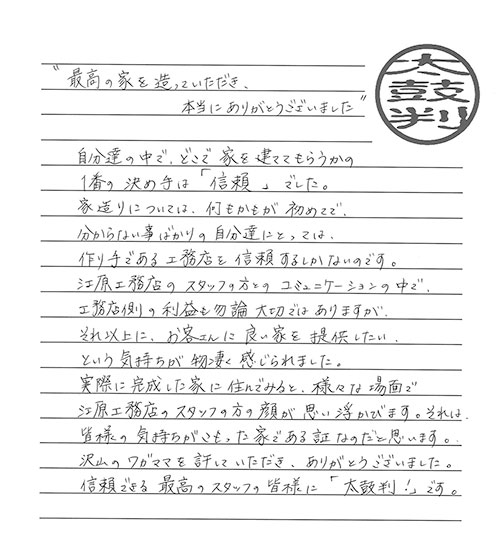 "最高の家を造っていただき、
本当にありがとうございました"
太鼓判
自分達の中で、どこで家を建ててもらうかの
1番の決め手は「信頼」でした。
家造りについては、何もかもが初めてで、
分からない事ばかりの自分達にとっては、
作り手である工務店を信頼するしかないのです。
江原工務店のスタッフの方とのコミュニケーションの中で、
工務店側の利益も勿論大切ではありますが、
それ以上に、お客さんに良い家を提供したい、
という気持ちが物凄く感じられました。
実際に完成した家に住んでみると、様々な場面で
江原工務店のスタッフの方の顔が思い浮かびます。それは、
皆様の気持ちがこもった家である証なのだと思います。
沢山のワガママを許していただき、ありがとうございました。
信頼できる最高のスタッフの皆様に「太鼓判!」です。